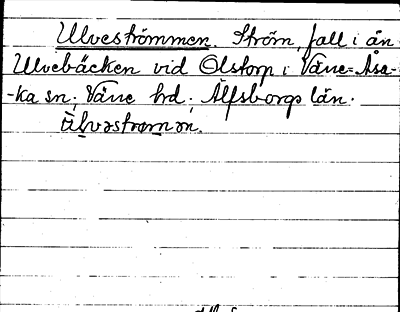 Ulveströmmen. Ström, fall i ån
Ulvebäcken vid Olstorp i Väne-Åsa-
-ka sn; Väne hd; Älfsborgs län.